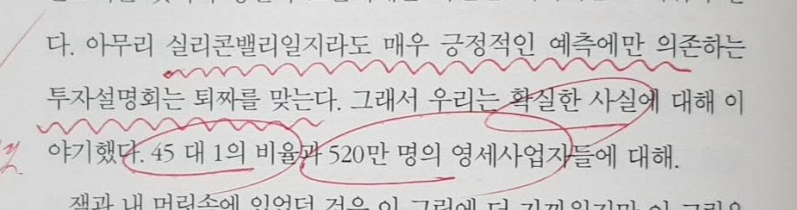 다. 아무리 실리콘밸리일지라도 매우 긍정적인 예측에만 의존하는
투자설명회는 퇴짜를 맞는다. 그래서 우리는 확실한 사실에 대해 이
야기했다. 45 대 1의 비율과 520만 명의 영세사업자들에 대해.
잭과 내 머릿속에 있었던 것은 이